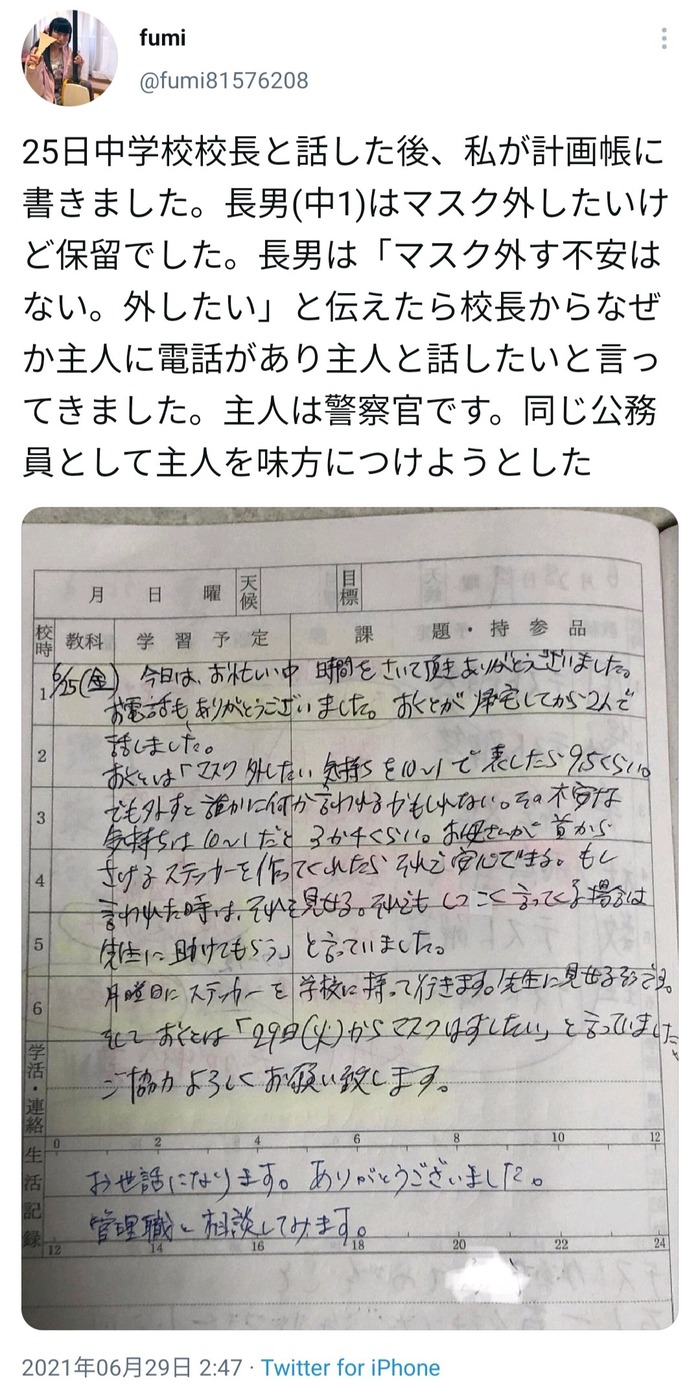 fumi
@fumi81576208
25日中学校校長と話した後、私が計画帳に
書きました。長男(中1)はマスク外したいけ
ど保留でした。長男は「マスク外す不安は
ない。外したい」と伝えたら校長からなぜ
か主人に電話があり主人と話したいと言っ
てきました。主人は警察官です。同じ公務
員として主人を味方につけようとした
月 日 曜 天候 目標
校時 教科 学習予定 課題・持参品
1 6/25(金) 今日は、お忙しい中 時間をさいて頂きありがとうございました。
お電話もありがとうございました。おくとが帰宅してから2人で
2 話しました。
おくとは「マスク外したい気持ちを10〜1で表したら9.5くらい。
3 でも外すと誰かに何か言われるかもしれない。その不安な
気持ちは10〜1だと3か4くらい。お母さんが首から
4 さげるステッカーを作ってくれたらそれで安心できる。もし
言われた時は、それを見せる。それでもしつこく言ってくる場合は
5 先生に助けてもらう」と言っていました。
6 月曜日にステッカーを学校に持って行きます。先生に見せるそうです。
そしておくとは「29日(火)からマスクはずしたい」と言っていました。
学活・連絡 ご協力よろしくお願い致します。
0 2 4 6 8 10 12
生活記録 お世話になります。ありがとうございました。
管理職と相談してみます。
12 14 16 18 20 22 24
2021年06月29日 2:47 · Twitter for iPhone